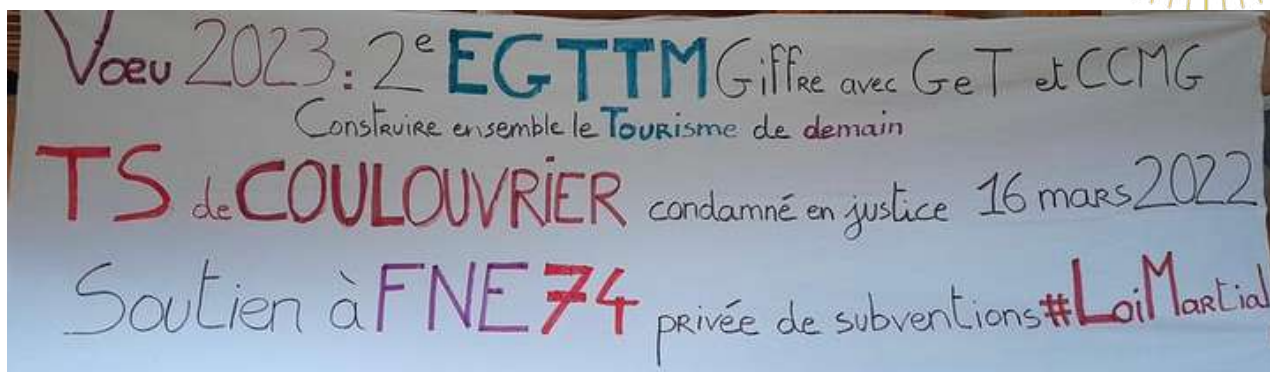 Vœu 2023 : 2e EGTTM Giffre avec GeT et CCMG
Construire ensemble le Tourisme de demain
TS de COULOUVRIER condamné en justice 16 mars 2022
Soutien à FNE 74 privée de subventions #LoiMartial